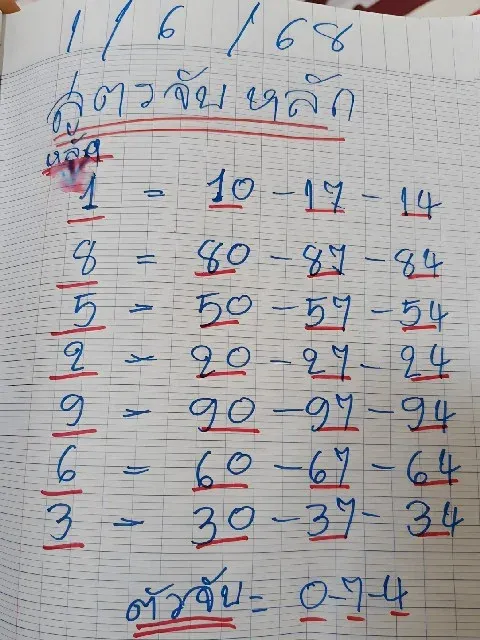 1 / 6 / 68
สูตรจับหลัก
หลัก
1 = 10 - 17 - 14
8 = 80 - 87 - 84
5 = 50 - 57 - 54
2 = 20 - 27 - 24
9 = 90 - 97 - 94
6 = 60 - 67 - 64
3 = 30 - 37 - 34
ตัวจับ = 0-7-4